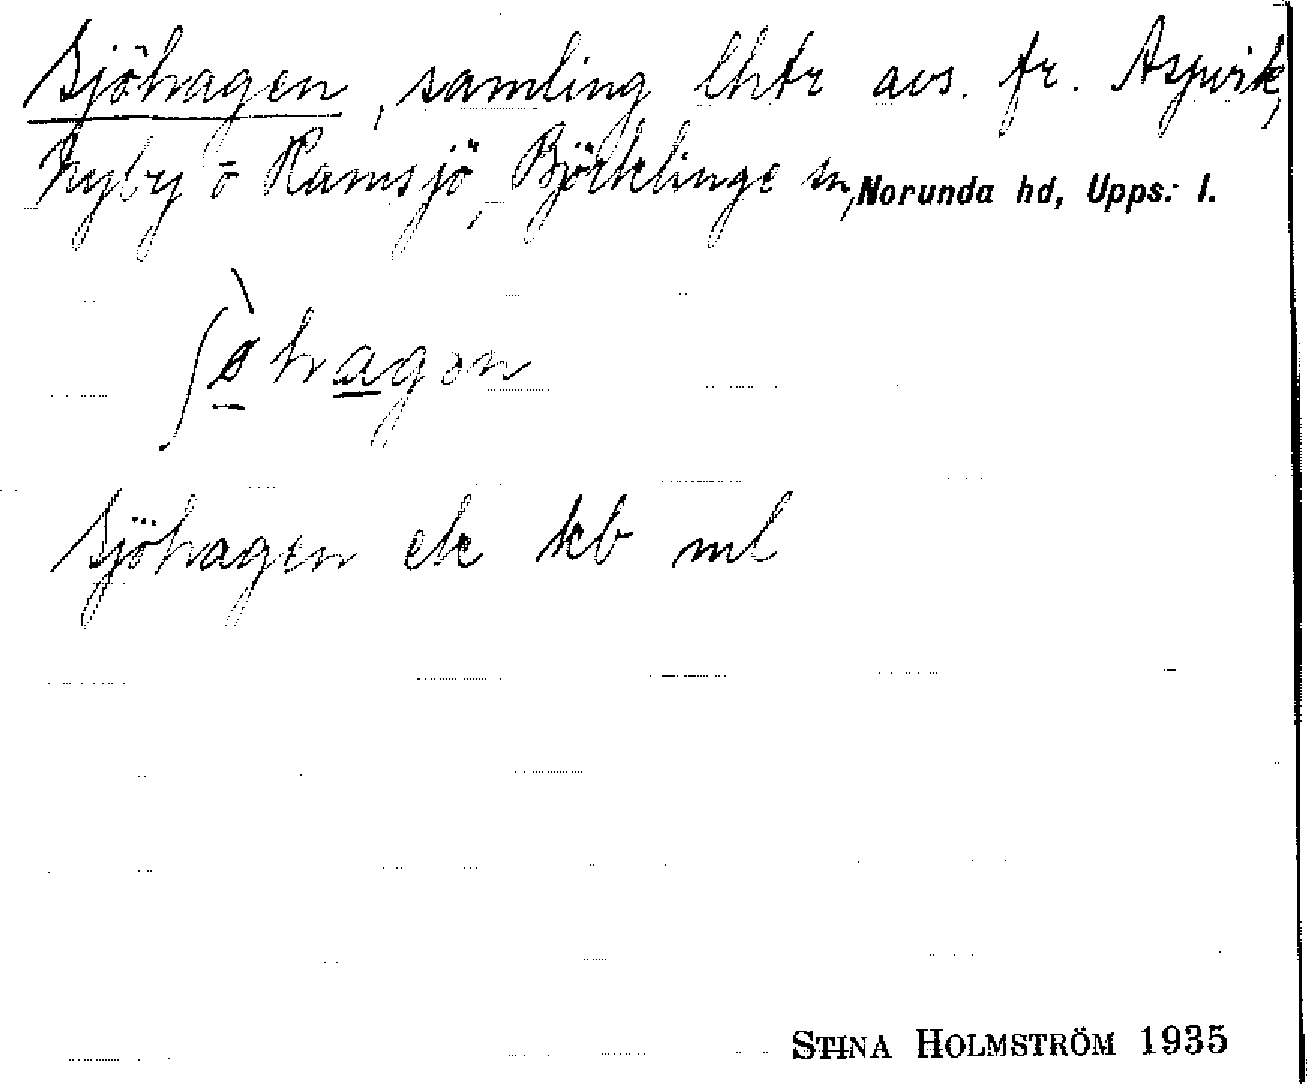 Sjöhagen, samling lhtr avs. fr. Aspvik,
Nyby o Ramsjö, Björklinge sn, Norunda hd, Upps. l.
Sjöhagen ek kb ml
STINA HOLMSTRÖM 1935